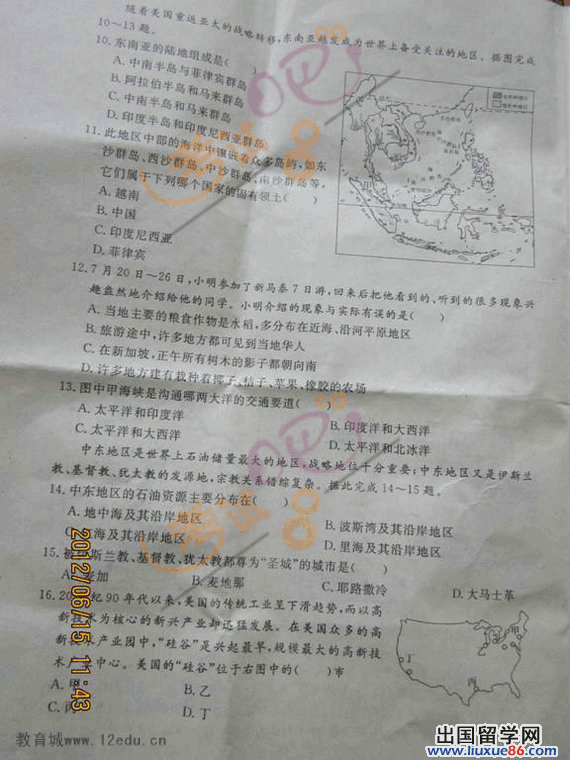 随着美国重返亚太的战略转移，东南亚越发成为世界上备受关注的地区。据图完成
10～13题。
10. 东南亚的陆地组成是(　　)
A. 中南半岛与菲律宾群岛
B. 阿拉伯半岛和马来群岛
C. 中南半岛和马来群岛
D. 印度半岛和印度尼西亚群岛
11. 此地区中部的海洋中镶嵌着众多岛屿，如东
沙群岛、西沙群岛、中沙群岛、南沙群岛等，
它们属于下列哪个国家的固有领土(　　)
A. 越南
B. 中国
C. 印度尼西亚
D. 菲律宾
12. 7月20日～26日，小明参加了新马泰7日游，回来后把他看到的、听到的很多现象兴
趣盎然地介绍给他的同学。小明介绍的现象与实际有误的是(　　)
A. 当地主要的粮食作物是水稻，多分布在近海、沿河平原地区
B. 旅游途中，许多地方都可见到当地华人
C. 在新加坡，正午所有树木的影子都朝向南
D. 许多地方建有栽种着椰子、桔子、苹果、橡胶的农场
13. 图中甲海峡是沟通哪两大洋的交通要道(　　)
A. 太平洋和印度洋
B. 印度洋和大西洋
C. 太平洋和大西洋
D. 太平洋和北冰洋
中东地区是世界上石油储量最大的地区，战略地位十分重要；中东地区又是伊斯兰
教、基督教、犹太教的发源地，宗教关系错综复杂。据此完成14～15题。
14. 中东地区的石油资源主要分布在(　　)
A. 地中海及其沿岸地区
B. 波斯湾及其沿岸地区
C. 海及其沿岸地区
D. 里海及其沿岸地区
15. 被斯兰教、基督教、犹太教都尊为“圣城”的城市是(　　)
A. 加
B. 麦地那
C. 耶路撒冷
D. 大马士革
16. 20纪90年代以来，美国的传统工业呈下滑趋势，而以高
新技术为核心的新兴产业却迅猛发展。在美国众多的高
新技产业园中，“硅谷”是兴起最早，规模最大的高新技
术中心。美国的“硅谷”位于右图中的(　　)市
A. 甲
B. 乙
C. 丙
D. 丁
甲
丁
丙
2012/06/15 11:43
考试吧
教育城www.12edu.cn
出国留学网
www.liuxue86.com